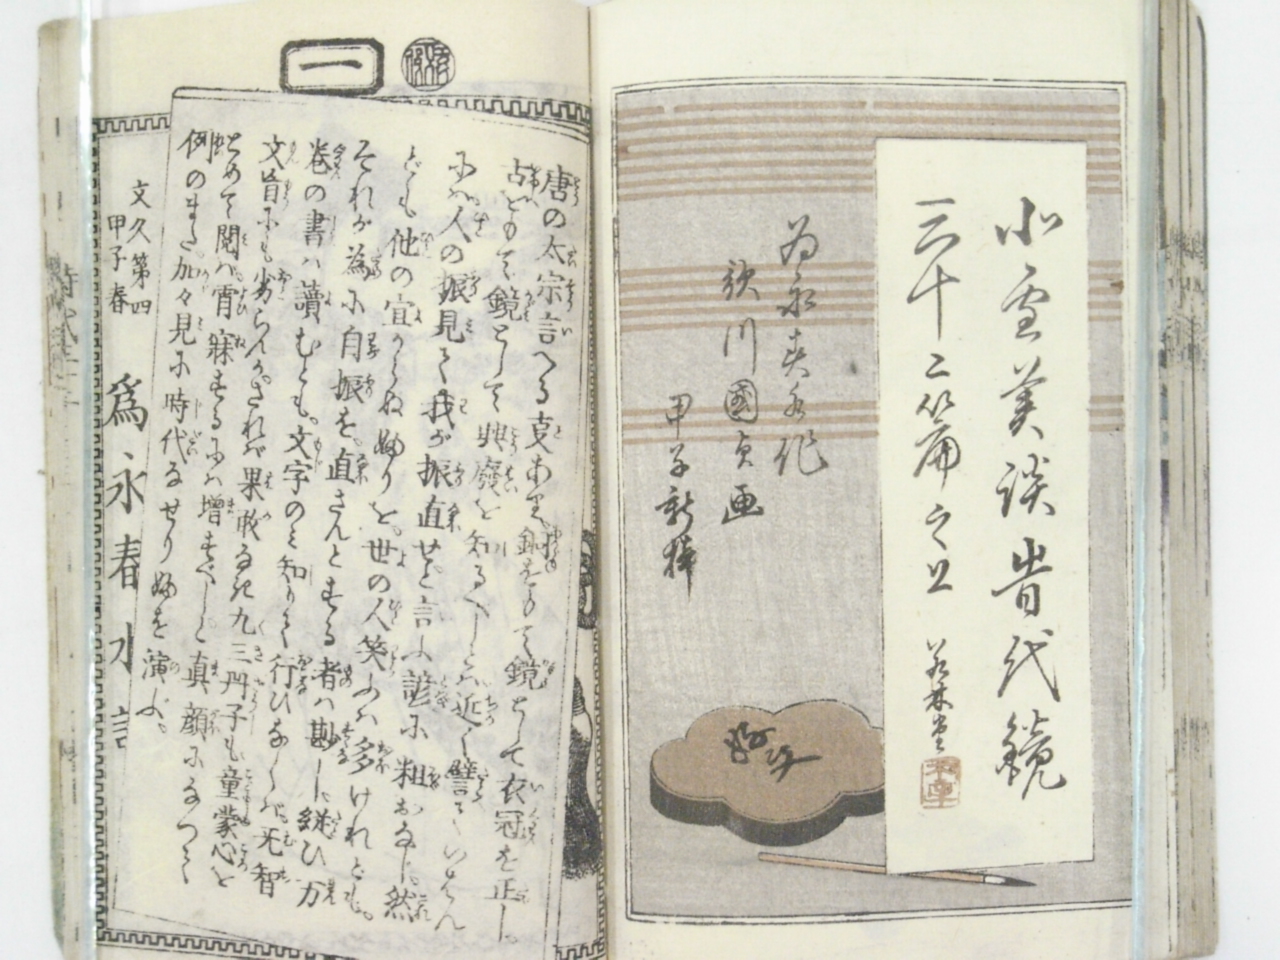 北雪美談時代鏡
三十二篇之上
若林堂
為永春水作
歌川國貞画
甲子新梓
一
唐の太宗言へる事あり銅をもて鏡として衣冠を正し。
古をもて鏡として興廢を知るべしとは近く譬ていはゞ
人の振見て我が振直せと言ふ諺に粗おなじ。然
ども他の宜からぬ婦りを。世の人笑ふは多けれども。
それが為に自振を。直さんとする者は尠し。縦ひ万
卷の書は讀むとも。文字のミ知りて行ひなくば。无智
文盲にも劣らんか。されば果敢なき九三丹子も童蒙心を
もて閲ば宵寐するには増すべしと真顔になつて
例のまた加々見に時代るせりふを演ぶ。
文久第四
甲子春
為永春水誌